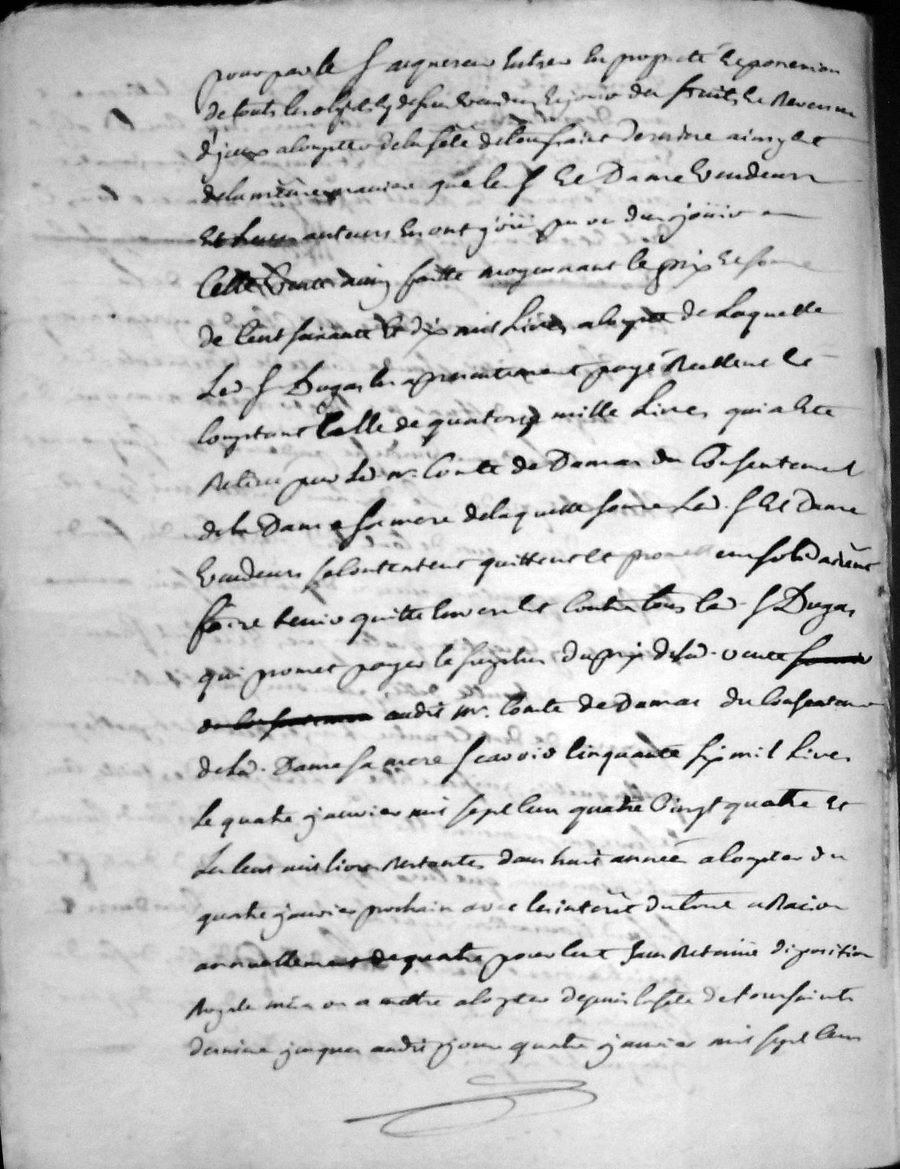 pour par le S acquereur Entrer En proprieté Et possession
de touts les objets cy dessus Vendus Et jouir des fruits Et Revenus
d'jceux a compter de la fête de Toussaint derniere ainsy Et
de la même maniere que les S Et Dame Vendeurs
Et Leurs auteurs En ont joüi pu ou du joüir
Cette Vente ainsy faitte moyennant le prix Et somme
de Cent soixante Et dix mil Livres a compte de Laquelle
Led S Dugas En a presentement payé Reellement Et
Comptant Celle de quatorze mille Livres qui a Eté
Retirée par Led. Mr. Comte de Damas du Consentement
de la Dame sa mere de laquelle somme Led. S Et Dame
Vendeurs se Contentent quittent Et promettent solidairemt
faire tenir quitte Envers Et Contre tous led. S Dugas
qui promet payer le surplus du prix de lad. vente
audit Mr. Comte de Damas du Consentement
de lad. Dame sa mere sçavoir Cinquante six mil Livres
Le quatre janvier mil sept Cent quatre Vingt quatre Et
Les Cent mil livres Restantes dans huit années a Compter du
quatre janvier prochain avec les interêts du tout a Raison
annuellement de quatre pour Cent sans Retenüe disposition
Royale mise ou a mettre a Compter depuis la fête de Toussaints
derniere jusques audit jour quatre janvier mil sept Cent